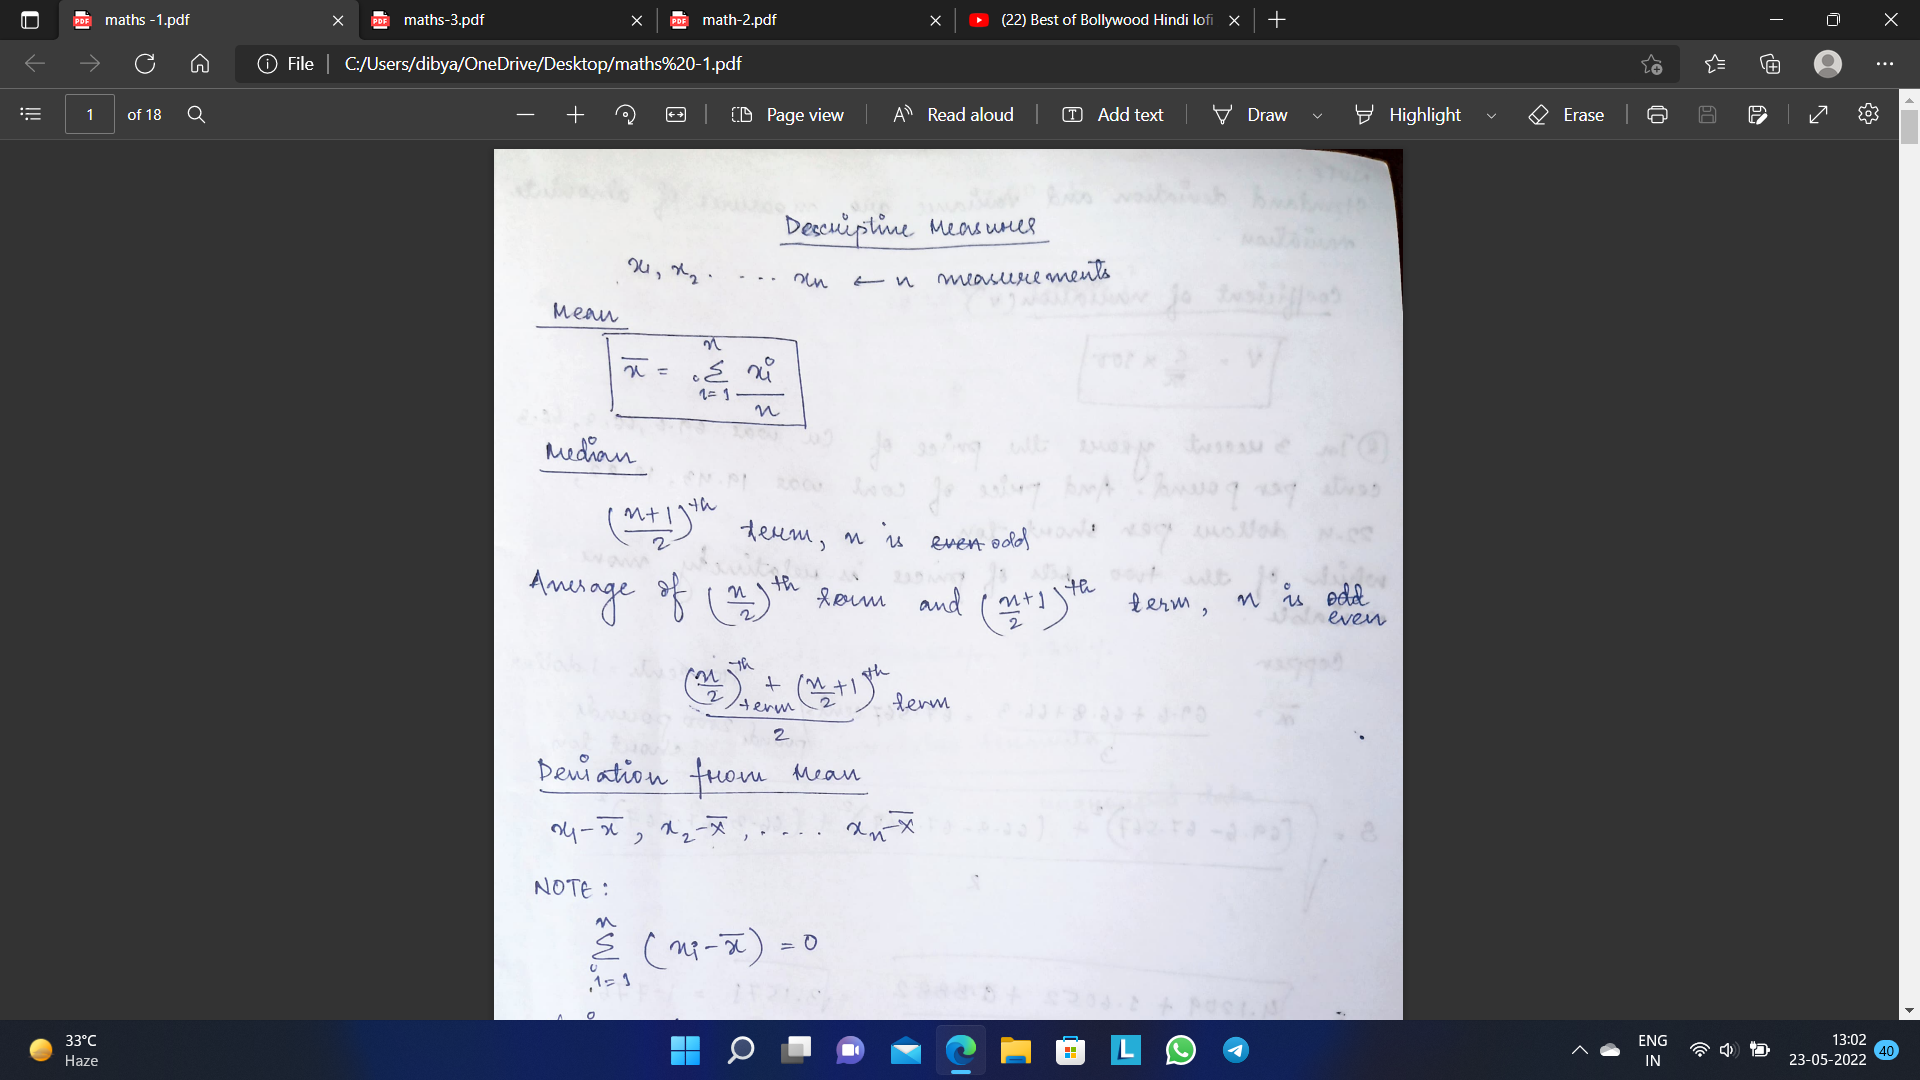 maths -1.pdf
maths-3.pdf
math-2.pdf
(22) Best of Bollywood Hindi lofi
File
C:/Users/dibya/OneDrive/Desktop/maths%20-1.pdf
1 of 18
Page view
Read aloud
Add text
Draw
Highlight
Erase
Descriptive Measures
x₁, x₂ . . . . . xn ← n measurements
Mean
x̄ = n Σ i=1 xi / n
Median
(n+1 / 2)th term, n is even odd
Average of (n/2)th term and (n+1 / 2)th term, n is odd even
(n/2)th term + (n/2 +1)th term / 2
Deviation from Mean
x₁-x̄, x₂-x̄, . . . . xn-x̄
NOTE:
n Σ i=1 (xi-x̄) = 0
33°C
Haze
ENG
IN
13:02
23-05-2022
40